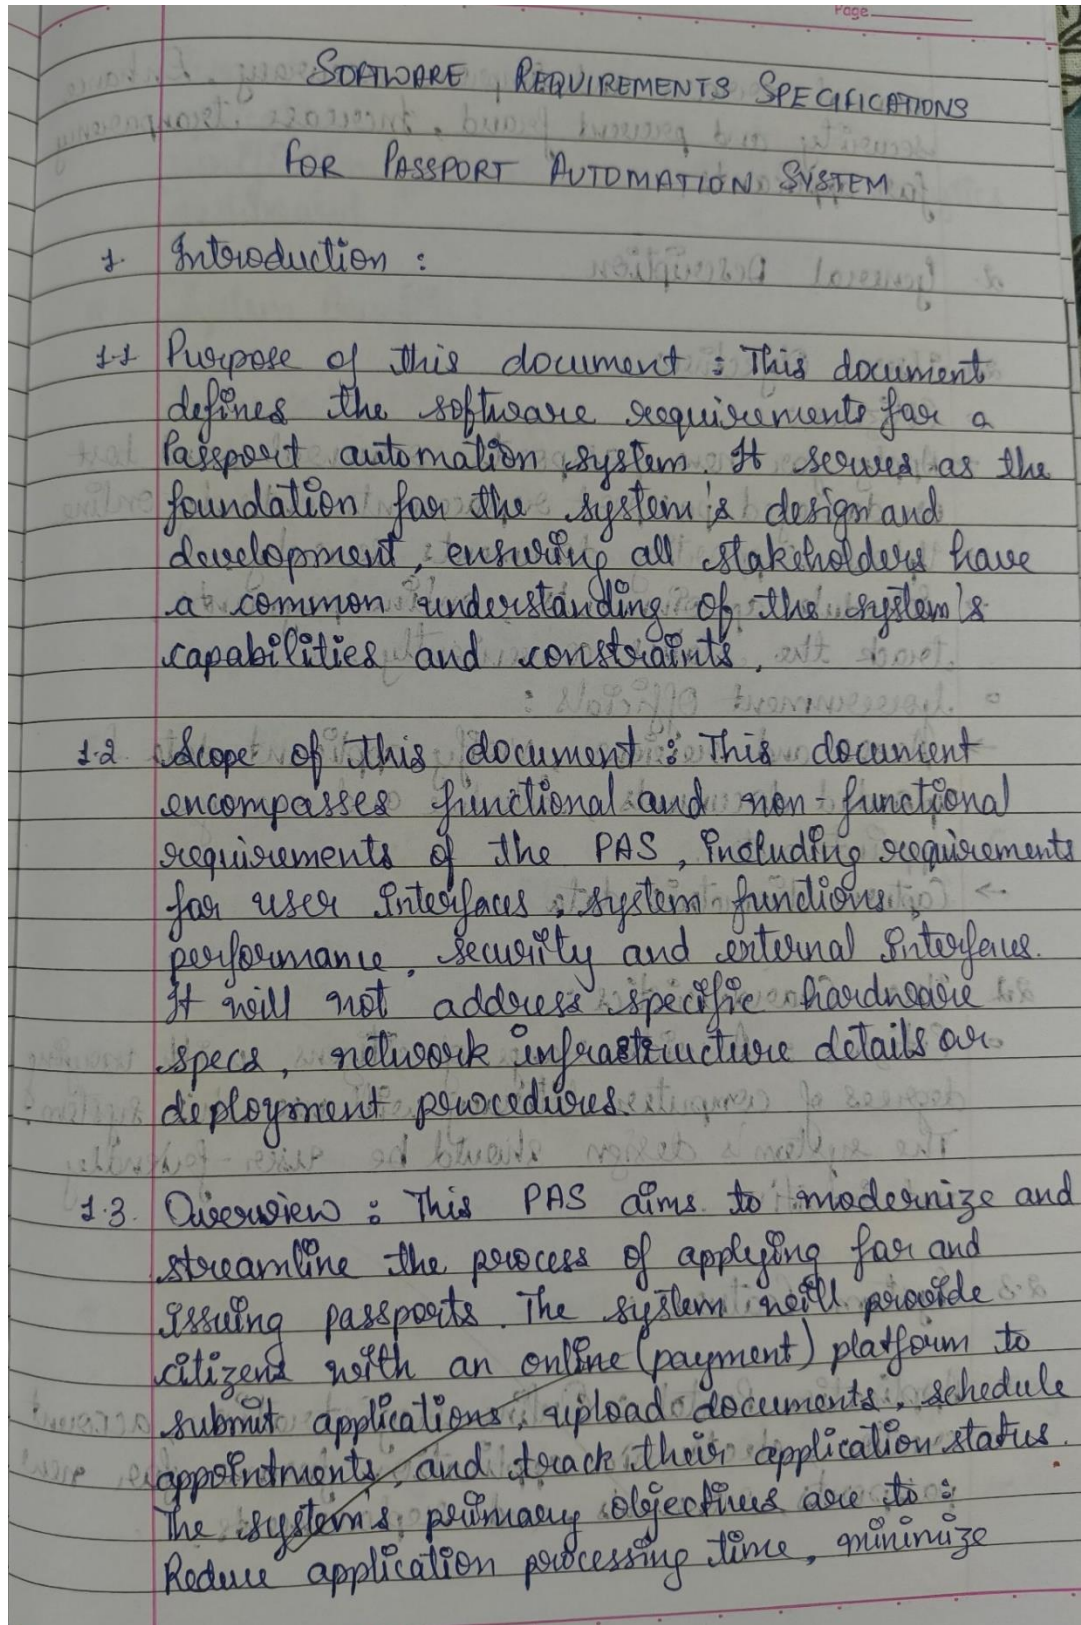 Page
SOFTWARE REQUIREMENTS SPECIFICATIONS
FOR PASSPORT AUTOMATION SYSTEM
1. Introduction :
1.1 Purpose of this document : This document
defines the software requirements for a
Passport automation system. It serves as the
foundation for the system's design and
development, ensuring all stakeholders have
a common understanding of the system's
capabilities and constraints.
1.2 Scope of this document : This document
encompasses functional and non-functional
requirements of the PAS, including requirements
for user interfaces, system functions,
performance, security and external interfaces.
It will not address specific hardware
specs, network infrastructure details or
deployment procedures.
1.3. Overview : This PAS aims to modernize and
streamline the process of applying for and
issuing passports. The system will provide
citizens with an online (payment) platform to
submit applications, upload documents, schedule
appointments, and track their application status.
The system's primary objectives are to :
Reduce application processing time, minimize